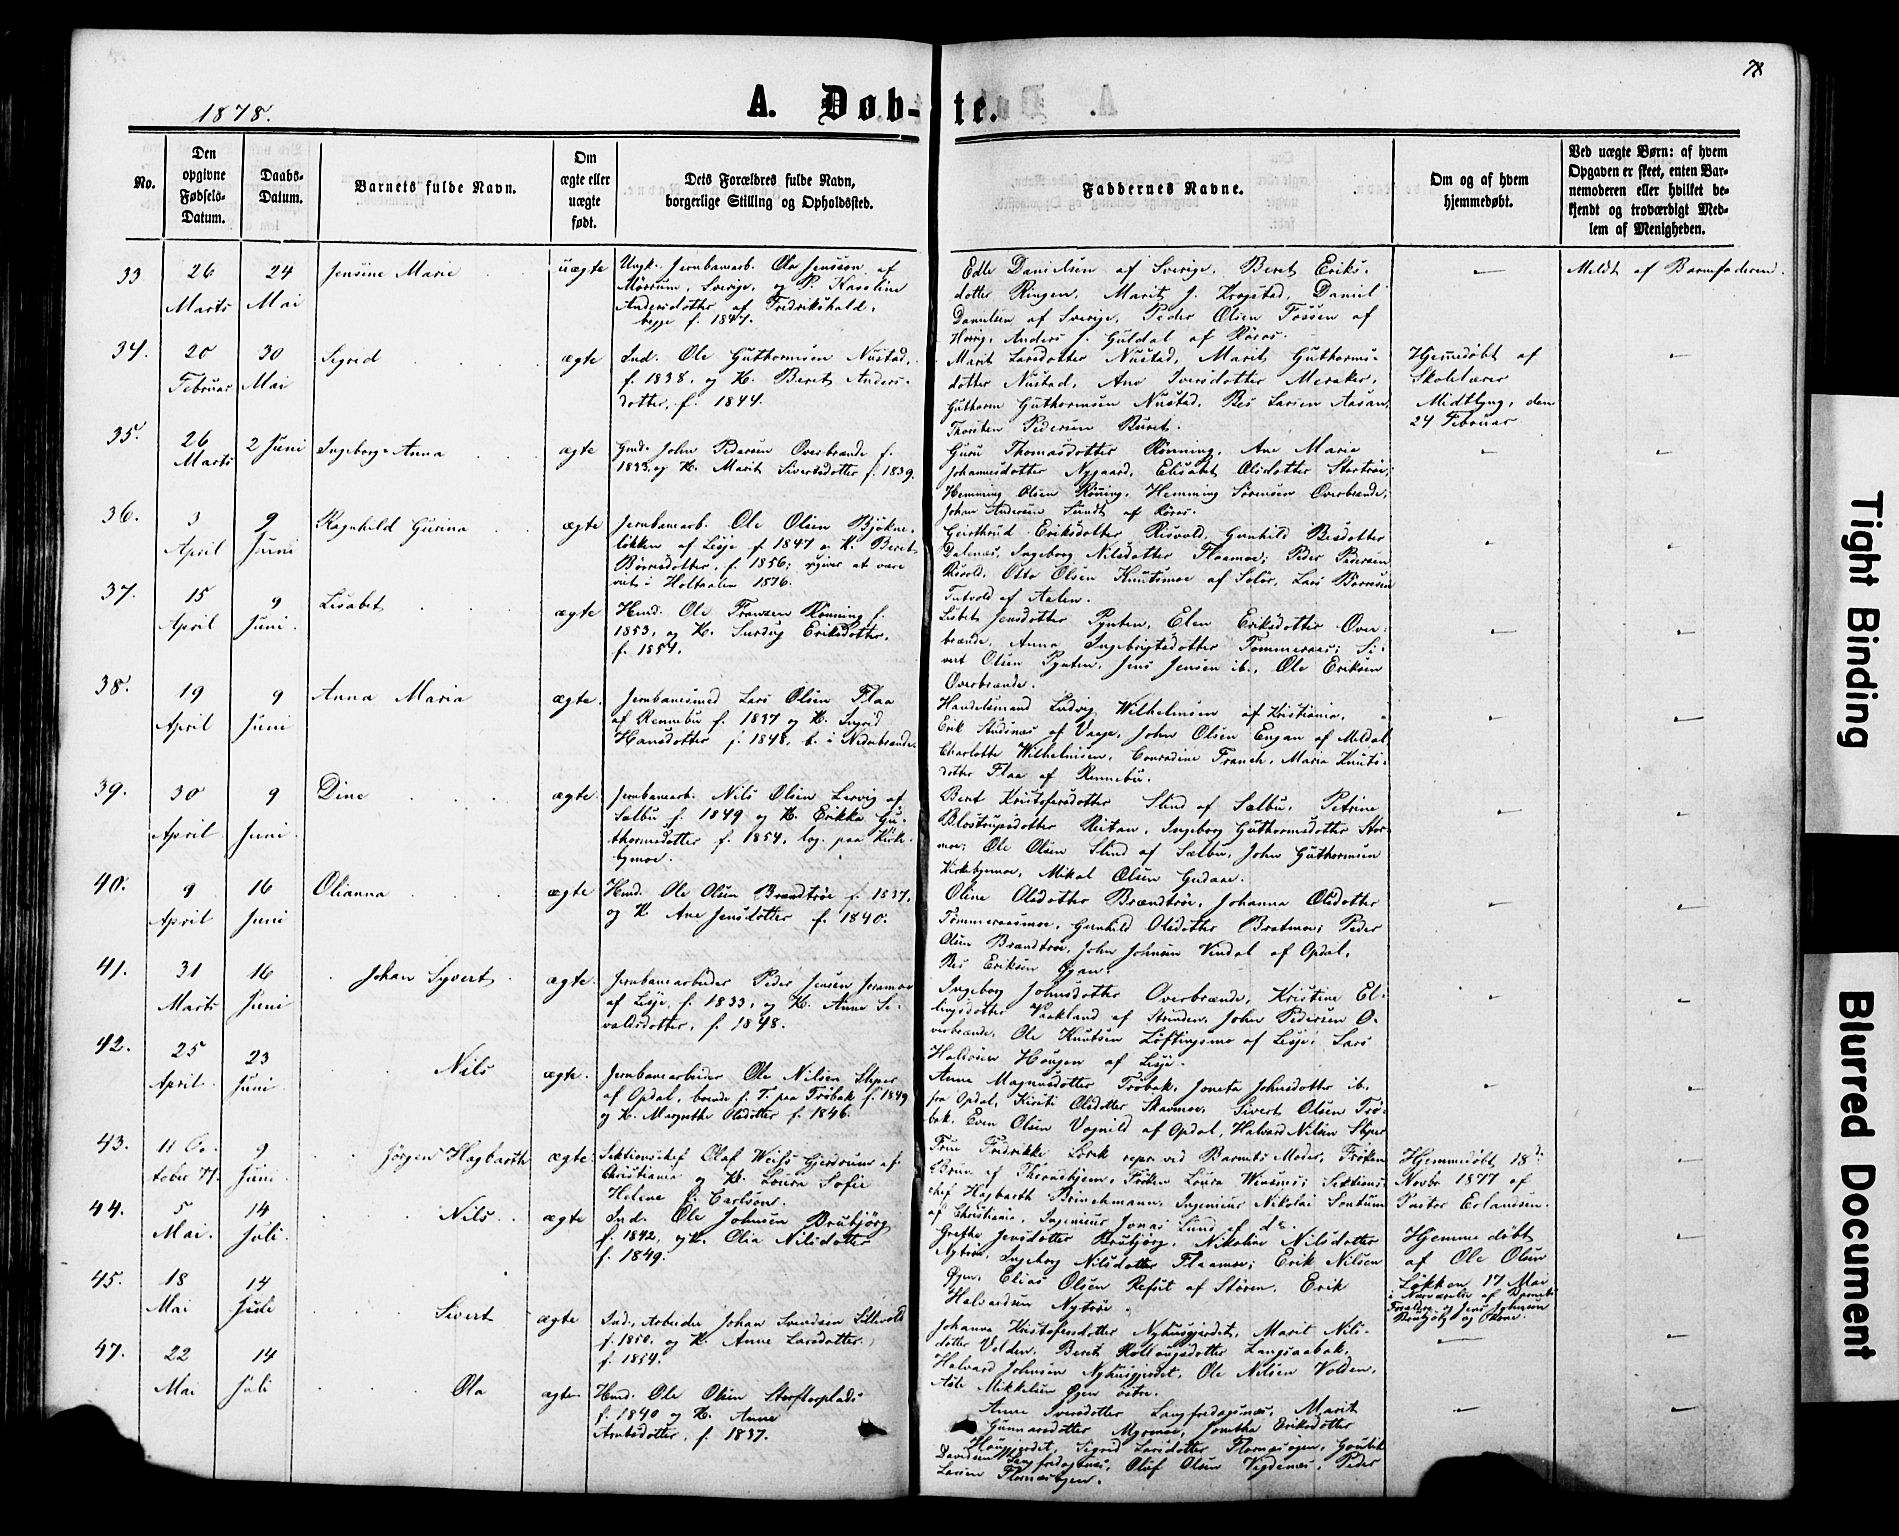 78
1878.
A. Døb-te.
No.
Den opgivne Fødsels-Datum.
Daabs-Datum.
Barnets fulde Navn.
Om ægte eller uægte født.
Dets Forældres fulde Navn, borgerlige Stilling og Opholdssted.
Faddernes Navne.
Om og af hvem hjemmedøbt.
Ved uægte Børn: af hvem Opgaven er skeet, enten Barnemoderen eller hvilket bekjendt og troværdigt Medlem af Menigheden.
33 26 Marts 24 Mai Jensine Marie uægte
Ungk. Jernbanearb. Ola Jensson af
Mörrum, Sverige, og P. Karoline
Andersdotter af Fredrikshald,
begge f. 1847.
Edle Danielsen af Sverige, Beret Eriks-
dotter Ringen, Marit J. Krogstad, Daniel
Danielsen af Sverige, Peder Olsen Fossen af
Horg, Anders J. Guldal af Röros.
Meldt af Barnefaderen.
34. 20 Februar 30 Mai Sigrid ægte
Ind. Ole Guthormsen Nustad,
f. 1838, og K. Beret Anders-
dotter, f. 1844.
Marit Larsdotter Nustad, Marit Guthorms-
dotter Nustad, Ane Iversdotter Meraker,
Guthorm Guthormsen Nustad, Bes Larsen Aasan,
Thorsten Pedersen Buret.
Hjemmedøbt af
Skolelærer
Midtlyng, den
24 Februar
35. 26 Marts 2 Juni Ingeborg Anna ægte
Gmd. John Pedersen Overbrænde f.
1833 og K. Marit Sivertsdotter f. 1839.
Guru Thomasdotter Rönning, Ane Maria
Johannesdotter Nygaard, Elisabet Olsdotter Stortröe;
Hemming Olsen Röning, Hemming Sörensen Overbrænde,
Johan Andersen Sundt af Röros.
36. 3 April 9 Juni Ragnhild Gurina ægte
Jernbanearb. Ole Olsen Bjökne-
løkken af Lesje f. 1847 o. K. Beret
Börresdotter, f. 1856; opgiver at være
viet i Holtaalen 1876.
Geirthrud Eriksdotter Risvold, Gunhild Besdotter
Dalenæs, Ingeborg Nilsdotter Flaamoe; Peder Pedersen
Risvold, Otto Olsen Knutsmoe af Solör, Lars Börresen
Tutvold af Aalen.
37. 15 April 9 Juni Lisabet ægte
Hmd. Ole Franzen Rönning f.
1853, og K. Snedug Eriksdotter,
f. 1854.
Lisbet Jensdotter Pynten, Elen Eriksdotter Over-
brænde, Anna Ingebrigtsdotter Tømmeraas; Si-
vert Olsen Pynten, Jens Jensen ib., Ole Eriksen
Overbrænde.
38. 19 April 9 Juni Anna Maria ægte.
Jernbanesmed Lars Olsen Flaa
af Rennebu f. 1837 og K. Sigrid
Hansdotter f. 1848, b. i Nedrebrænde.
Handelsmand Ludvig Wilhelmsen af Kristiania,
Erik Andsnæs af Vaage, John Olsen Engan af Meldal
Charlotte Wilhelmsen, Conradine Franck, Maria Knuts-
dotter Flaa af Rennebu.
39. 30 April 9 Juni. Dine ægte.
Jernbanearb. Nils Olsen Lervig af
Sælbu f. 1849 og K. Erikka Gu-
thormsdotter f. 1854, log. paa Kirke-
bymoe.
Beret Kristofersdotter Slind af Sælbu, Petrine
Blostrupsdotter Reitan, Ingeborg Guthormsdotter Stor-
moe; Ole Olsen Slind af Sælbu, John Guthormsen
Kirkebymoe, Mikal Olsen Gudaae.
40. 9 April 16 Juni Olianna ægte
Hmd. Ole Olsen Brændtröe f. 1837,
og K. Ane Jensdotter f. 1840.
Oline Olsdotter Brændtröe, Johanna Olsdotter
Tømmeraasmoe, Gunhild Olsdotter Bratmoe; Peder
Olsen Brændtröe, John Johnsen Vindal af Opdal,
Bes Eriksen Øyan.
41. 31 Marts 16 Juni Johan Syvert ægte.
Jernbanearbeider Peder Jensen Joramoe
af Lesje, f. 1833, og K. Anne Si-
valdsdotter, f. 1848.
Ingeborg Johnsdotter Overbrænde, Kristine El-
lingsdotter Vaakland af Strinden, John Pedersen O-
verbrænde, Ole Knutsen Löftingsmo af Lesje, Lars
Halvorsen Hougen af Lesje.
42. 25 April. 23 Juni Nils ægte.
Jernbanearbeider Ole Nilsen Skper
af Opdal, boende f. T. paa Tröbak f. 1849
og K. Margrethe Olsdotter f. 1846.
Anne Magnusdotter Tröbak, Joneta Johnsdotter ib.
fra Opdal, Kirsti Olsdotter Skavmoe, Sivert Olsen Trö-
bak, Even Olsen Vognild af Opdal, Halvard Nilsen Skper
43. 11 Oc-tober 77. 9 Juni. Jörgen Hagbarth ægte.
Sektionschef Olaf Weils Gjerdrum af
Christiania og K. Laura Sofie
Helene f. Carlson.
Frue Fredrikke Lörik repr. ved Barnets Moder, Fröken
Brun af Throndhjem, Fröken Laura Winsnes; Sektions-
chef Hagbarth Brinchmann, Ingeniør Nikolai Sontum
af Christiania, Ingeniør Jonas Lund af do.
Hjemmedøbt 18de
Novbr 1877 af
Pastor Erlandsen.
44. 5 Mai. 14 Juli. Nils. ægte
Ind. Ole Johnsen Brubjörg
f. 1842, og K. Olia Nilsdotter
f. 1849.
Grethe Jensdotter Brubjörg, Nikoline Nilsdotter
Nytröe, Ingeborg Nilsdotter Flaamoe; Erik Nilsen
Øyen, Elias Olsen Refset af Stören, Erik
Halvardsen Nytröe.
Hjemmedøbt
af Ole Olsen
Løkken 17 Mai
i Nærværelse af Barnets
Forældre og Jens Johnsen
45. 18 Mai 14 Jule Sivert ægte
Ind. Arbeider Johan Svendsen Lillevold
f. 1850, og K. Anne Larsdotter
f. 1854.
Johanna Kristofersdotter Nyhusgjerdet, Marit Nils-
dotter Volden, Beret Rollougsdotter Langsaabak,
Halvard Johnsen Nyhusgjerdet, Ole Nilsen Volden,
Asle Mikkelsen Øyen östre.
47. 22 Mai 14 Juli Ola ægte
Hmd. Ole Olsen Storflorplads
f. 1840 og K. Anne
Arntsdotter, f. 1837.
Anne Iversdotter Langfredagsnæs, Marit
Gunnarsdotter Myrmoe, Jonetha Eriksdotter
Hauggjerdet, Sigrid Larsdotter Flornæsøyen, Goulik
Davidsen Langfredagsnæs, Oluf Olsen Vigdenæs, Peder
Larsen Flornæsøyen.
Tight Binding
Blurred Document